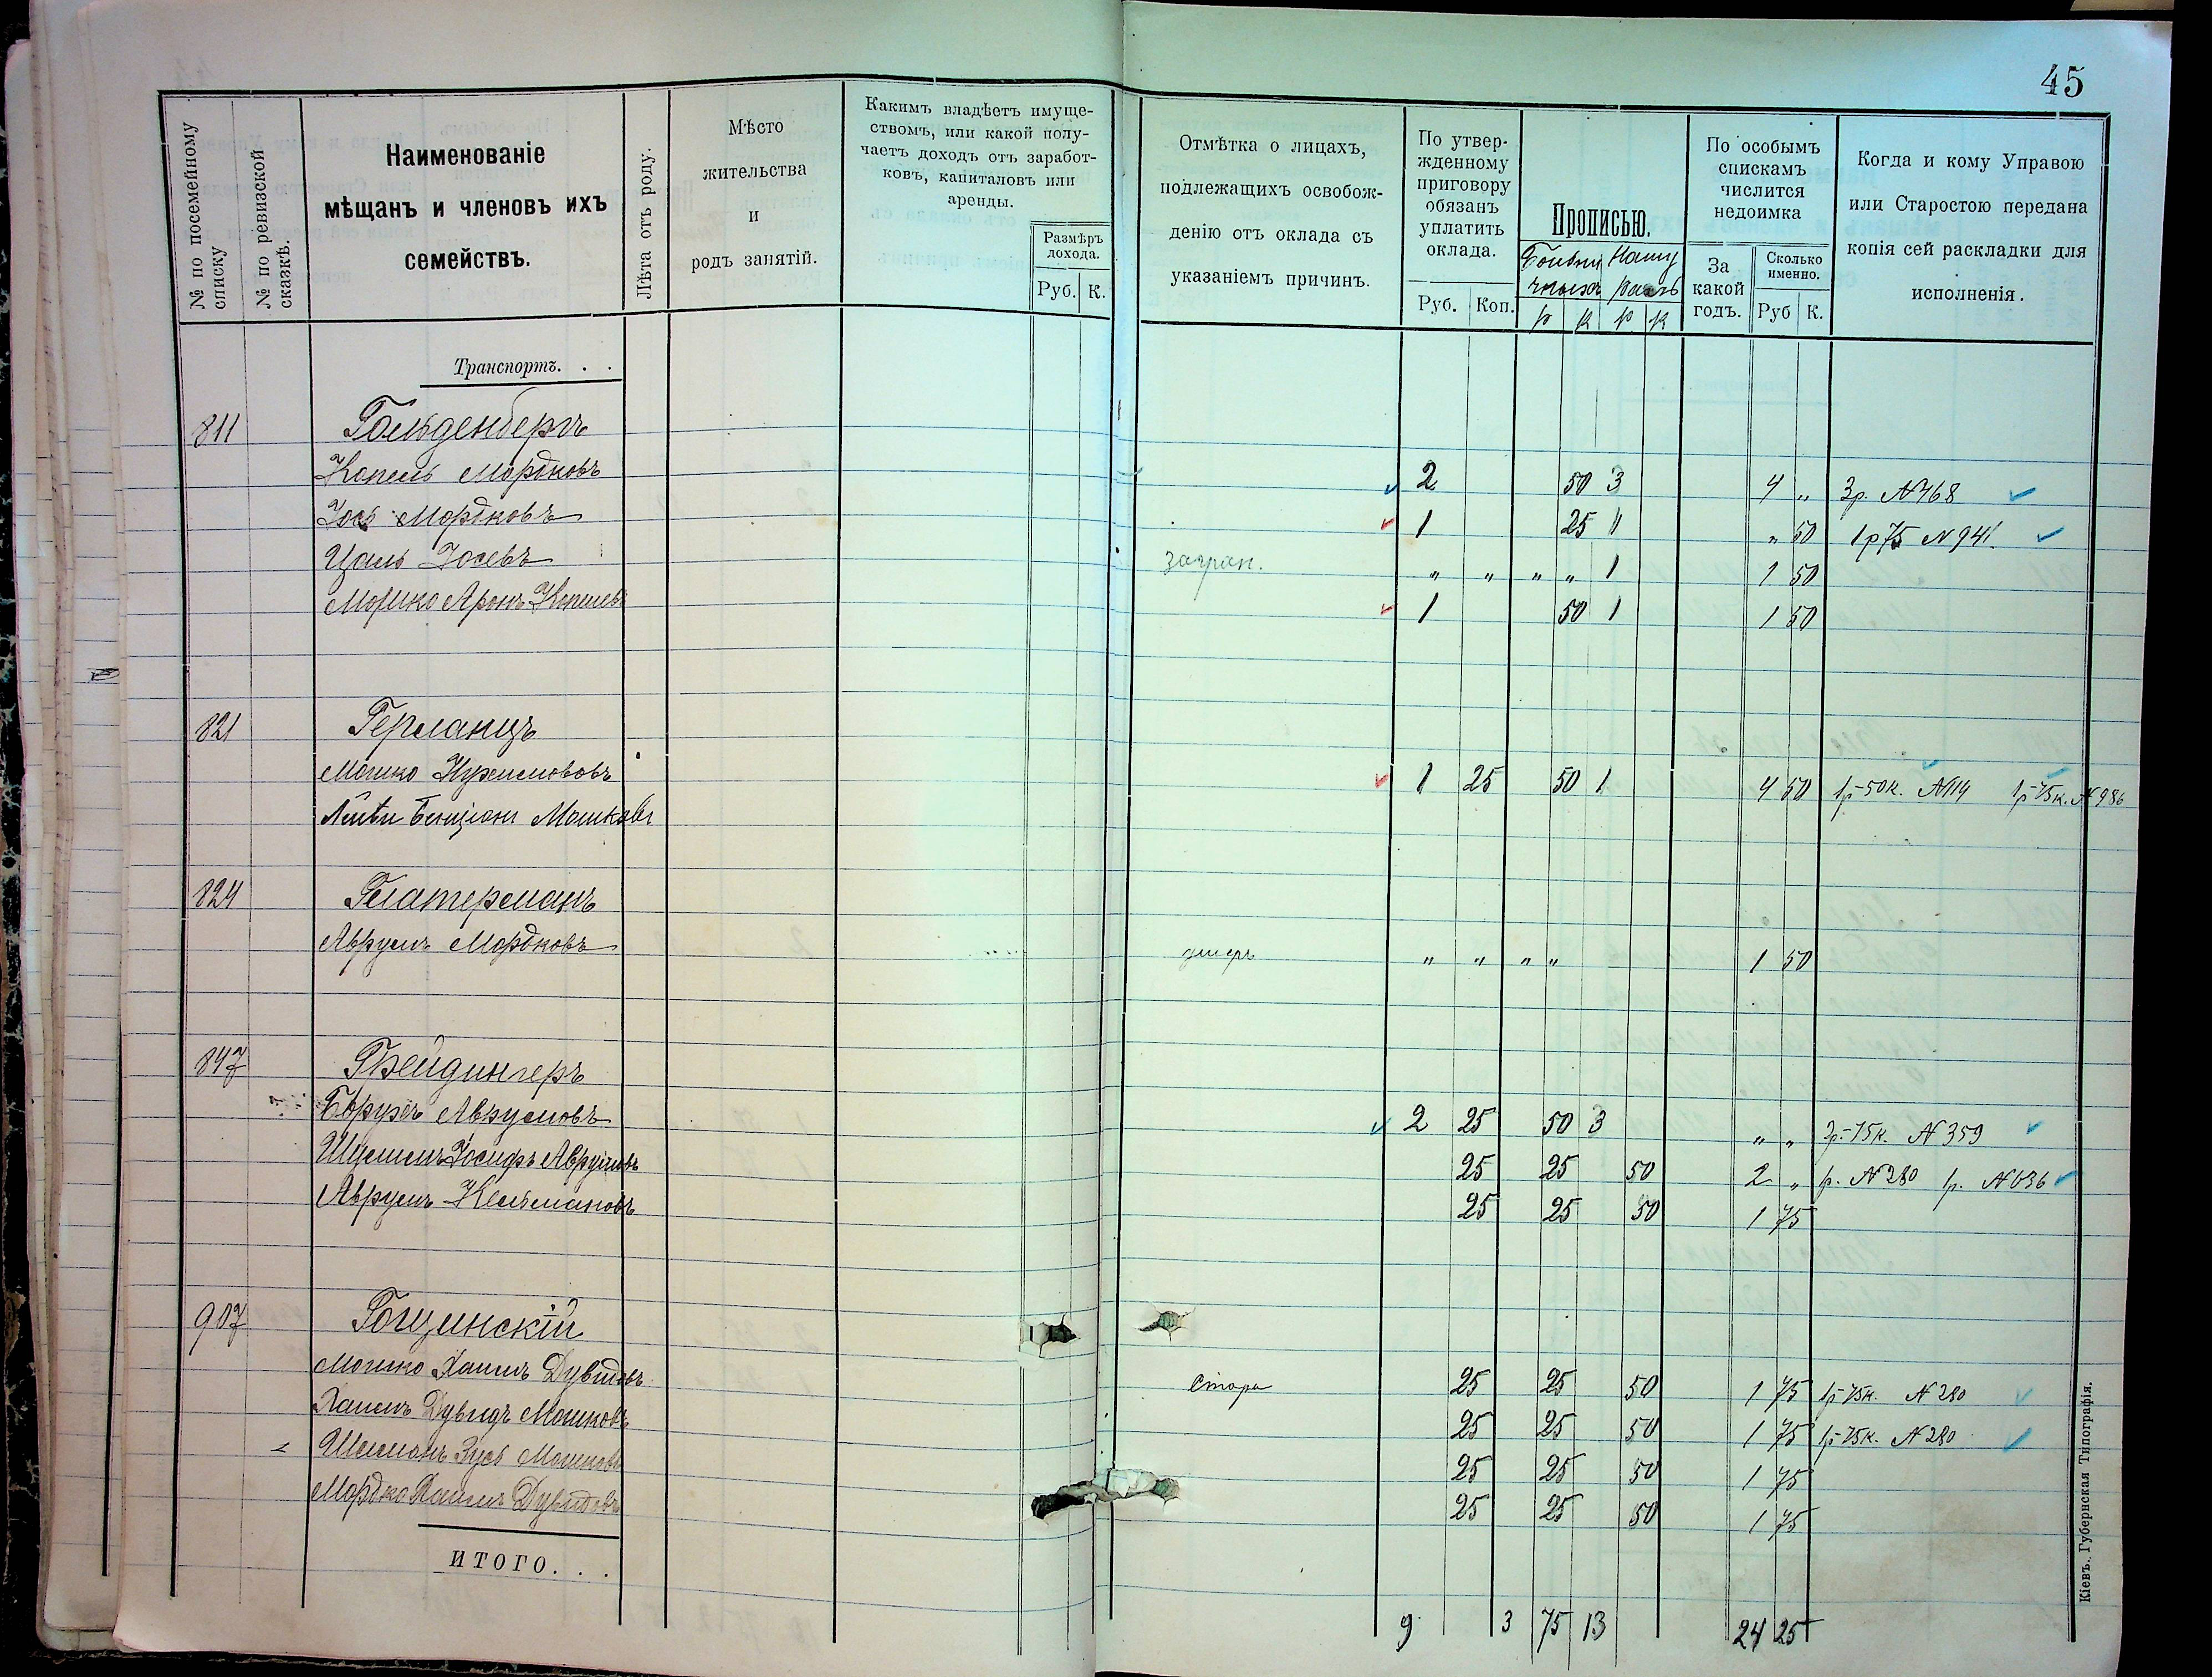 45
№ по посемейному списку
№ по ревизской сказкѣ.
Наименованіе мѣщанъ и членовъ ихъ семействъ.
Лѣта отъ роду.
Мѣсто жительства и родъ занятій.
Какимъ владѣетъ имуществомъ, или какой получаетъ доходъ отъ заработковъ, капиталовъ или аренды.
Размѣръ дохода.
Руб. К.
Отмѣтка о лицахъ, подлежащихъ освобожденію отъ оклада съ указаніемъ причинъ.
По утвержденному приговору обязанъ уплатить оклада.
Руб. Коп.
Прописью.
р к р к
По особымъ спискамъ числится недоимка
За какой годъ.
Сколько именно.
Руб К.
Когда и кому Управою или Старостою передана копія сей раскладки для исполненія.
Транспортъ. . .
811 Гольденбергъ
Копель Мордковъ 2 50 3 4 „ 3р. N 468
Іось Мордковъ 1 25 1 „ 50 1р 75 N 941
Цаль Іосевъ загран. „ „ „ „ 1 1 50
Мошко Аронъ Копелевъ 1 50 1 1 50
821 Германъ
Мошко 1 25 50 1 4 50 1р-50к. N 114 1р-75к. N 986
Лейби Бенціонъ Мошковъ
824 Глатерманъ
Аврумъ Мордковъ умеръ „ „ „ „ 1 50
847 Гвейдингеръ
Аврумовъ 2 25 50 3 „ „ 3р.-75к. N 359
Шулимъ Іосифъ Аврумовъ 25 25 50 2 „ 1р. N 280 1р. N 636
Аврумъ Кельмановъ 25 25 50 1 75
907 Гощинскій
Мошко Хаимъ Дувидовъ стары 25 25 50 1 75 1р-75к. N 280
Хаимъ Дувидъ Мошковъ 25 25 50 1 75 1р-75к. N 280
Шлиома Зусь Мошковъ 25 25 50 1 75
Мордко Хаимъ Дувидовъ 25 25 50 1 75
ИТОГО. . .
9 3 75 13 24 25
Кіевъ. Губернская Типографія.